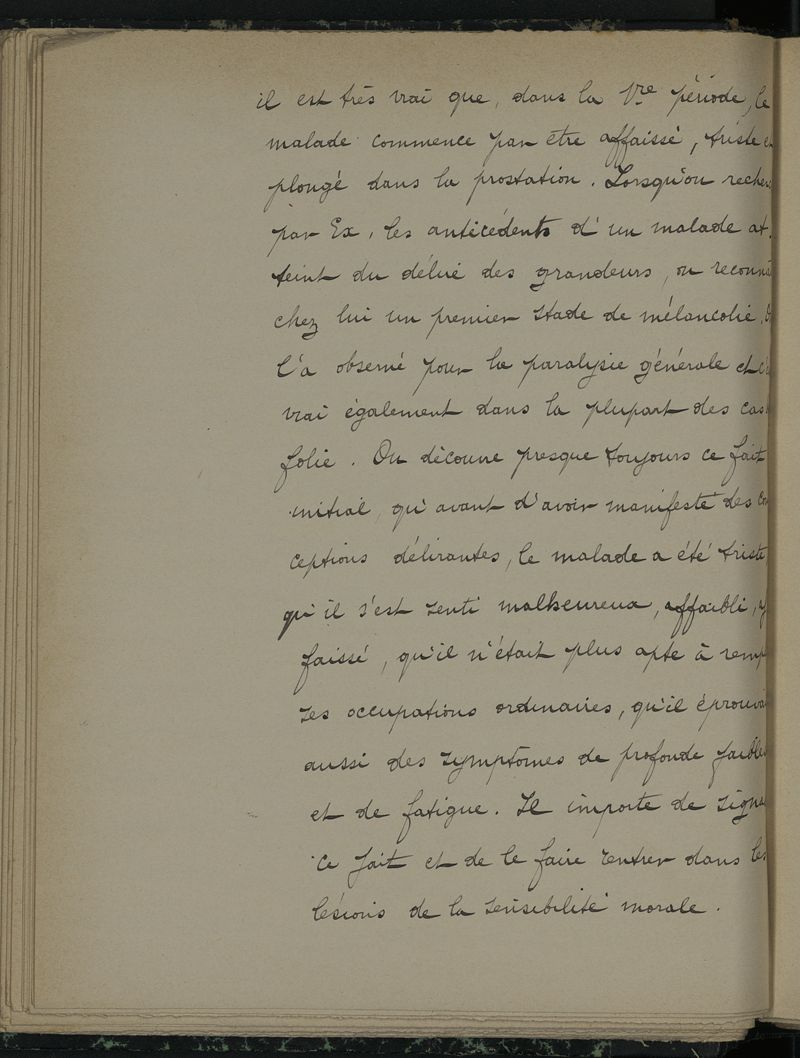 il est très vrai que, dans la 1re période, le
malade commence par être affaissé, triste e
plongé dans la prostation. Lorsqu'on recher
par Ex, les antécédents d'un malade at
teint du délire des grandeurs, on reconnai
chez lui un premier stade de mélancolie. O
l'a observé pour la paralysie générale et c'e
vrai également dans la plupart des cas
folie. On découvre presque toujours ce fait
initial, qu'avant d'avoir manifesté des con
ceptions délirantes, le malade a été triste
qu'il s'est senti malheureux, affaibli,
faissé, qu'il n'était plus apte à remp
ses occupations ordinaires, qu'il éprouvai
aussi des symptômes de profonde faibles
et de fatigue. Il importe de signa
ce fait et de le faire rentrer dans les
lésions de la sensibilité morale.